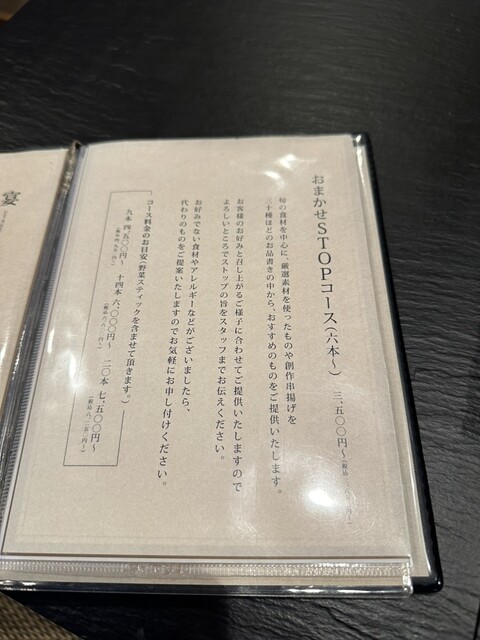 おまかせSTOPコース（六本〜） 三、五〇〇円〜
旬の食材を中心に、厳選素材を使ったものや創作串揚げを
三十種ほどのお品書きの中から、おすすめのものをご提供いたします。
お客様のお好みと召し上がるご様子に合わせてご提供いたしますので
よろしいところでストップの旨をスタッフまでお伝えください。
お好みでない食材やアレルギーなどがございましたら、
代わりのものをご提案いたしますのでお気軽にお申し付けください。
コース料金のお目安（野菜スティックを含ませて頂きます。）
九本 四、五〇〇円〜 十四本 六、〇〇〇円〜 二〇本 七、五〇〇円〜
宴